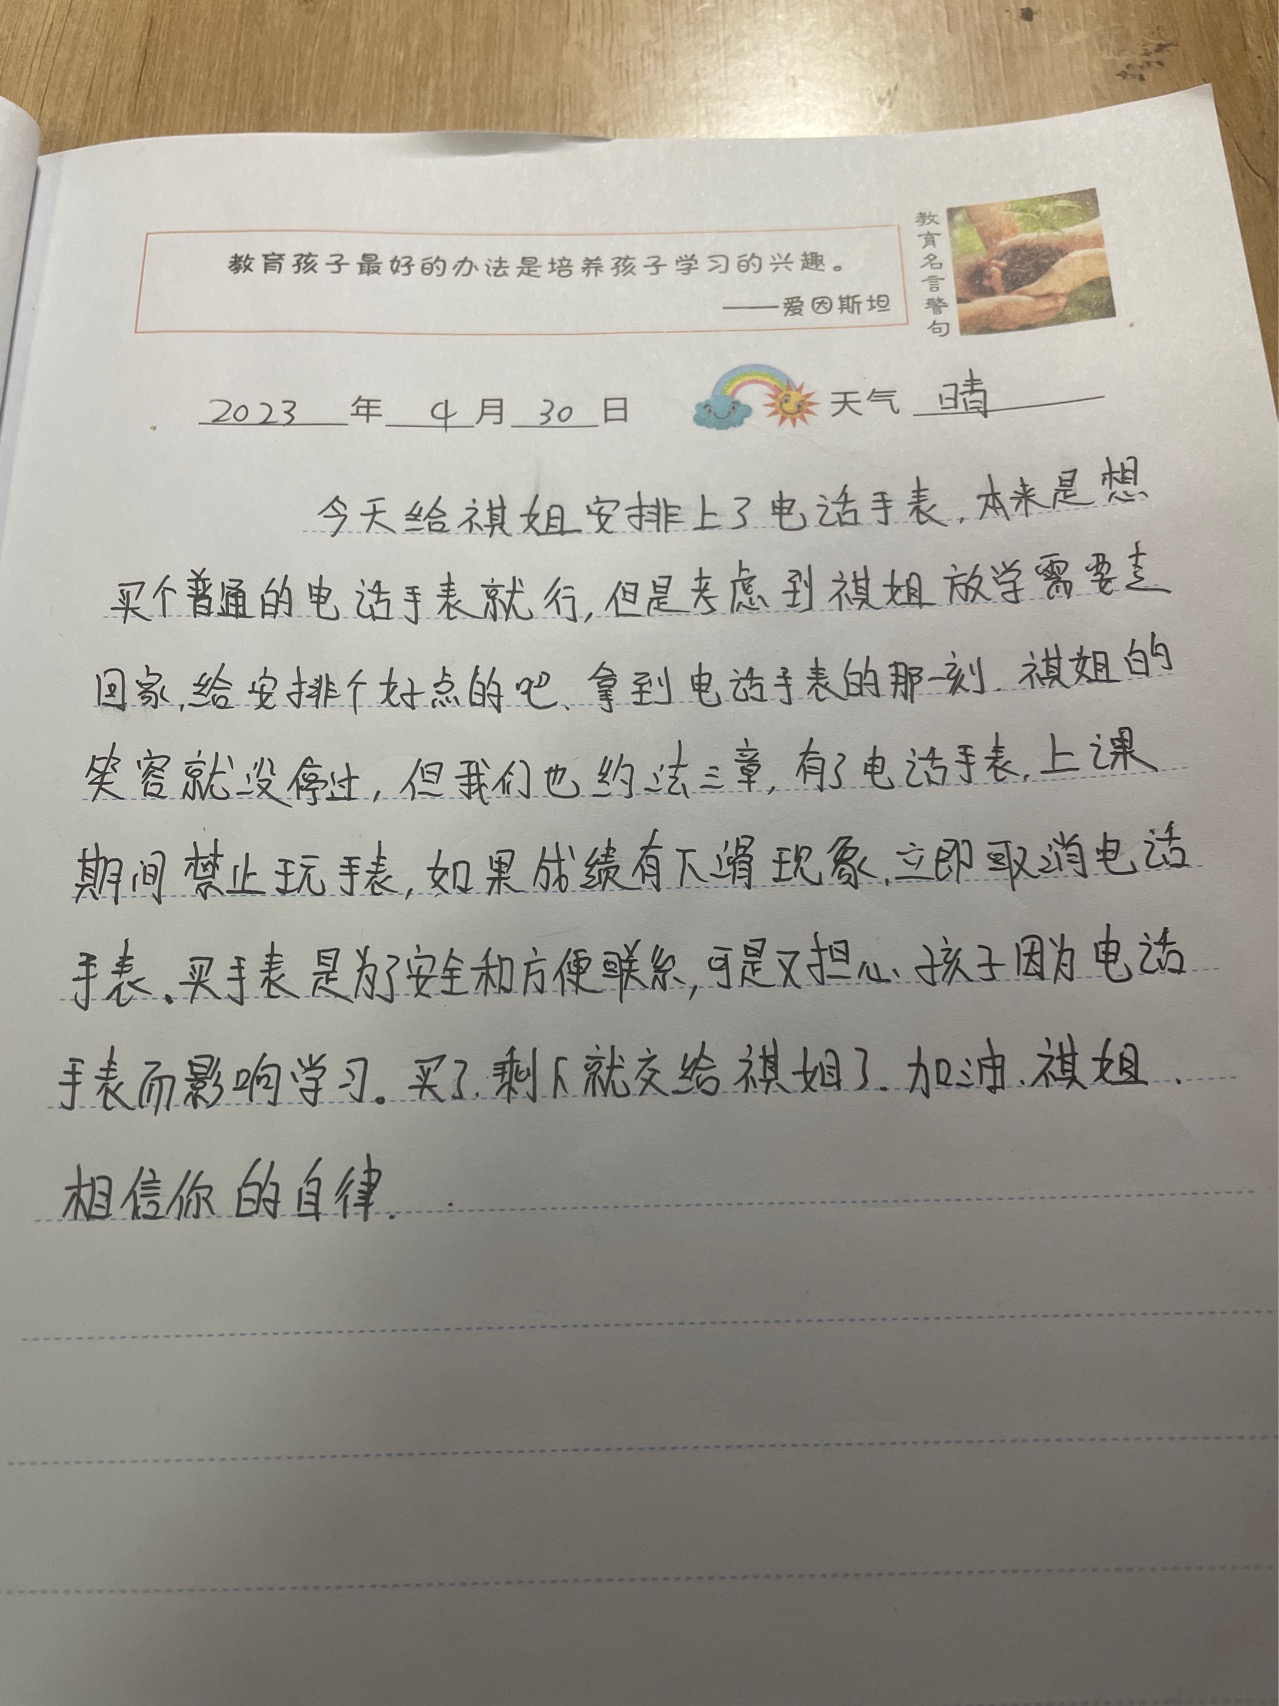 教育孩子最好的办法是培养孩子学习的兴趣。
——爱因斯坦
教育名言警句
2023年4月30日 天气 晴
今天给祺姐安排上了电话手表,本来是想
买个普通的电话手表就行,但是考虑到祺姐放学需要走
回家,给安排个好点的吧、拿到电话手表的那一刻.祺姐的
笑容就没停过,但我们也约法三章,有了电话手表,上课
期间禁止玩手表,如果成绩有下滑现象,立即取消电话
手表。买手表是为了安全和方便联系,可是又担心、孩子因为电话
手表而影响学习。买了,剩下就交给祺姐了.加油、祺姐.
相信你的自律..